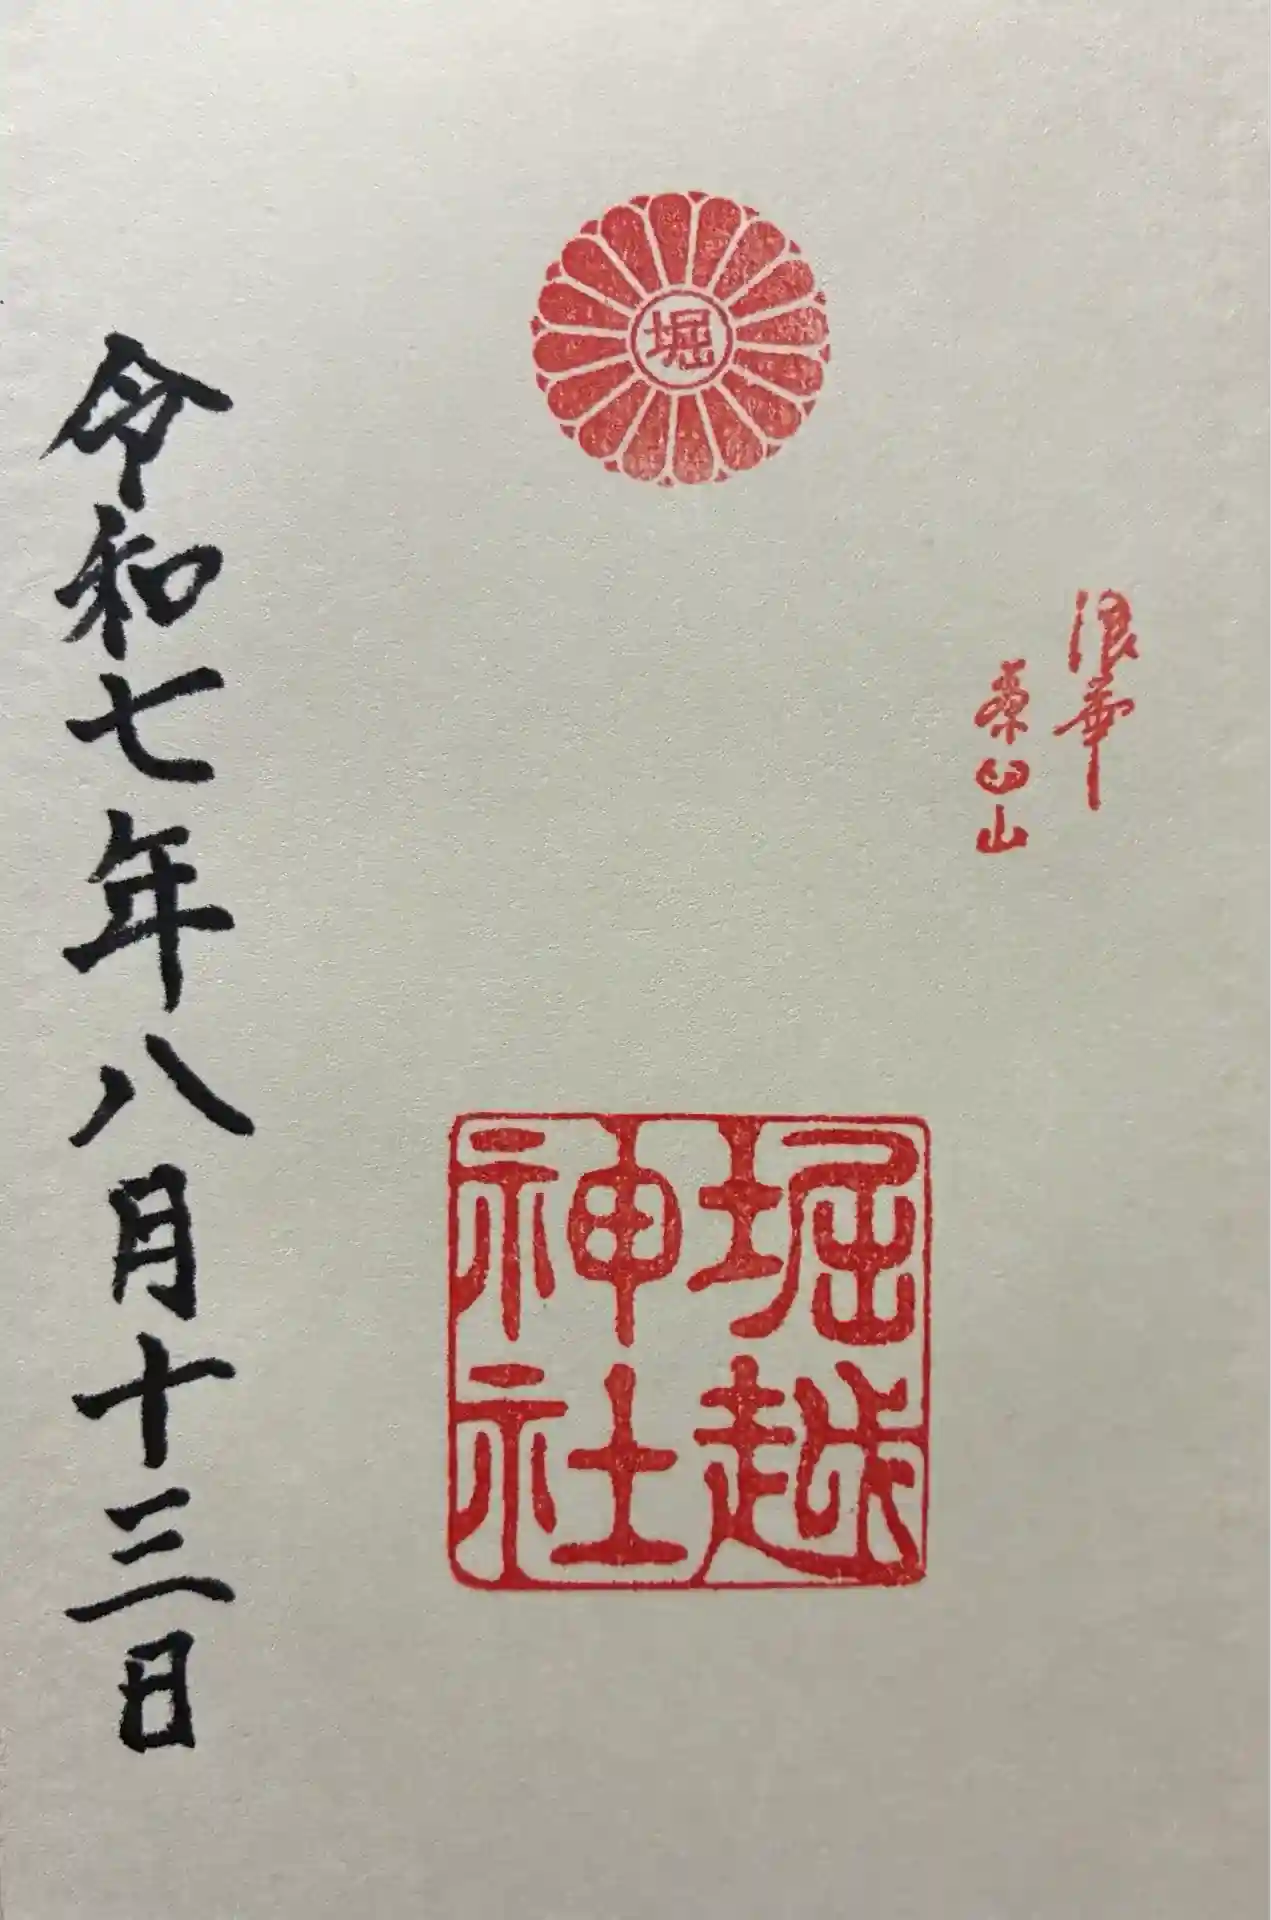 浪華
茶臼山
堀
堀越
神社
令和七年八月十三日